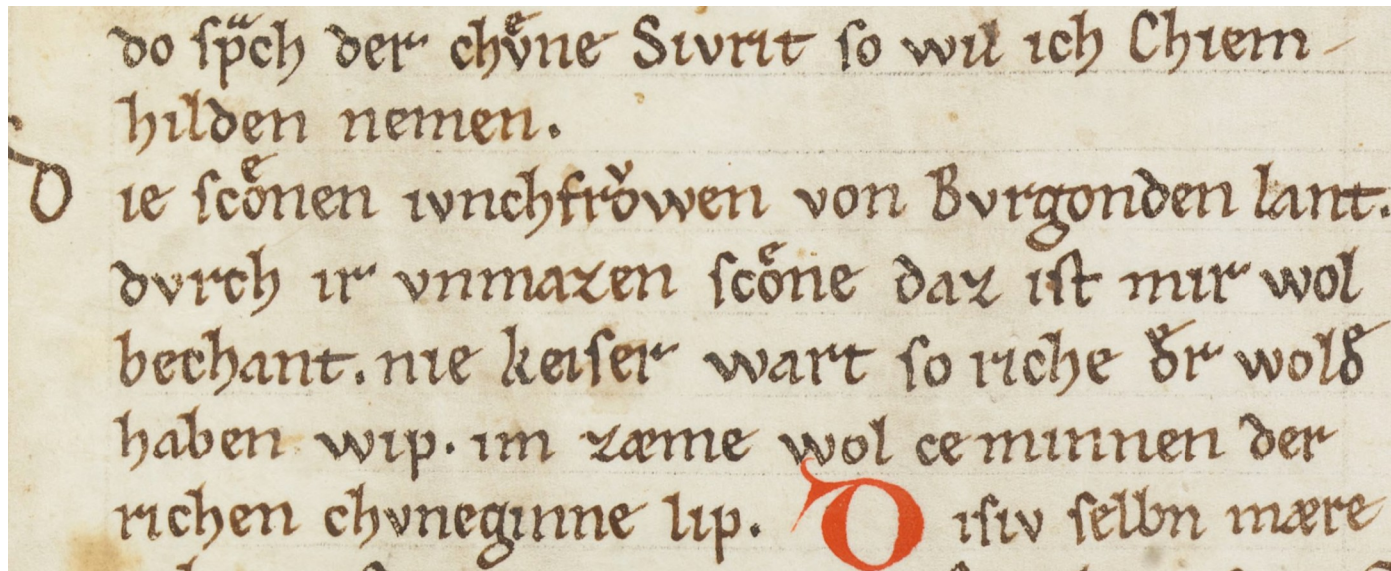 do ſpᵃch der chvͤne Sivrit ſo wil ich Chiem-
hilden nemen.
d ie ſcoͤnen ivnchfroͮwen von Bvrgonden lant.
dvrch ir vnmazen ſcoͤne daz iſt mir wol
bechant. nie keiſer wart ſo riche d̓r wold̓
haben wip. im zæme wol ce minnen der
richen chvneginne lip. D iſiv ſelbn mære